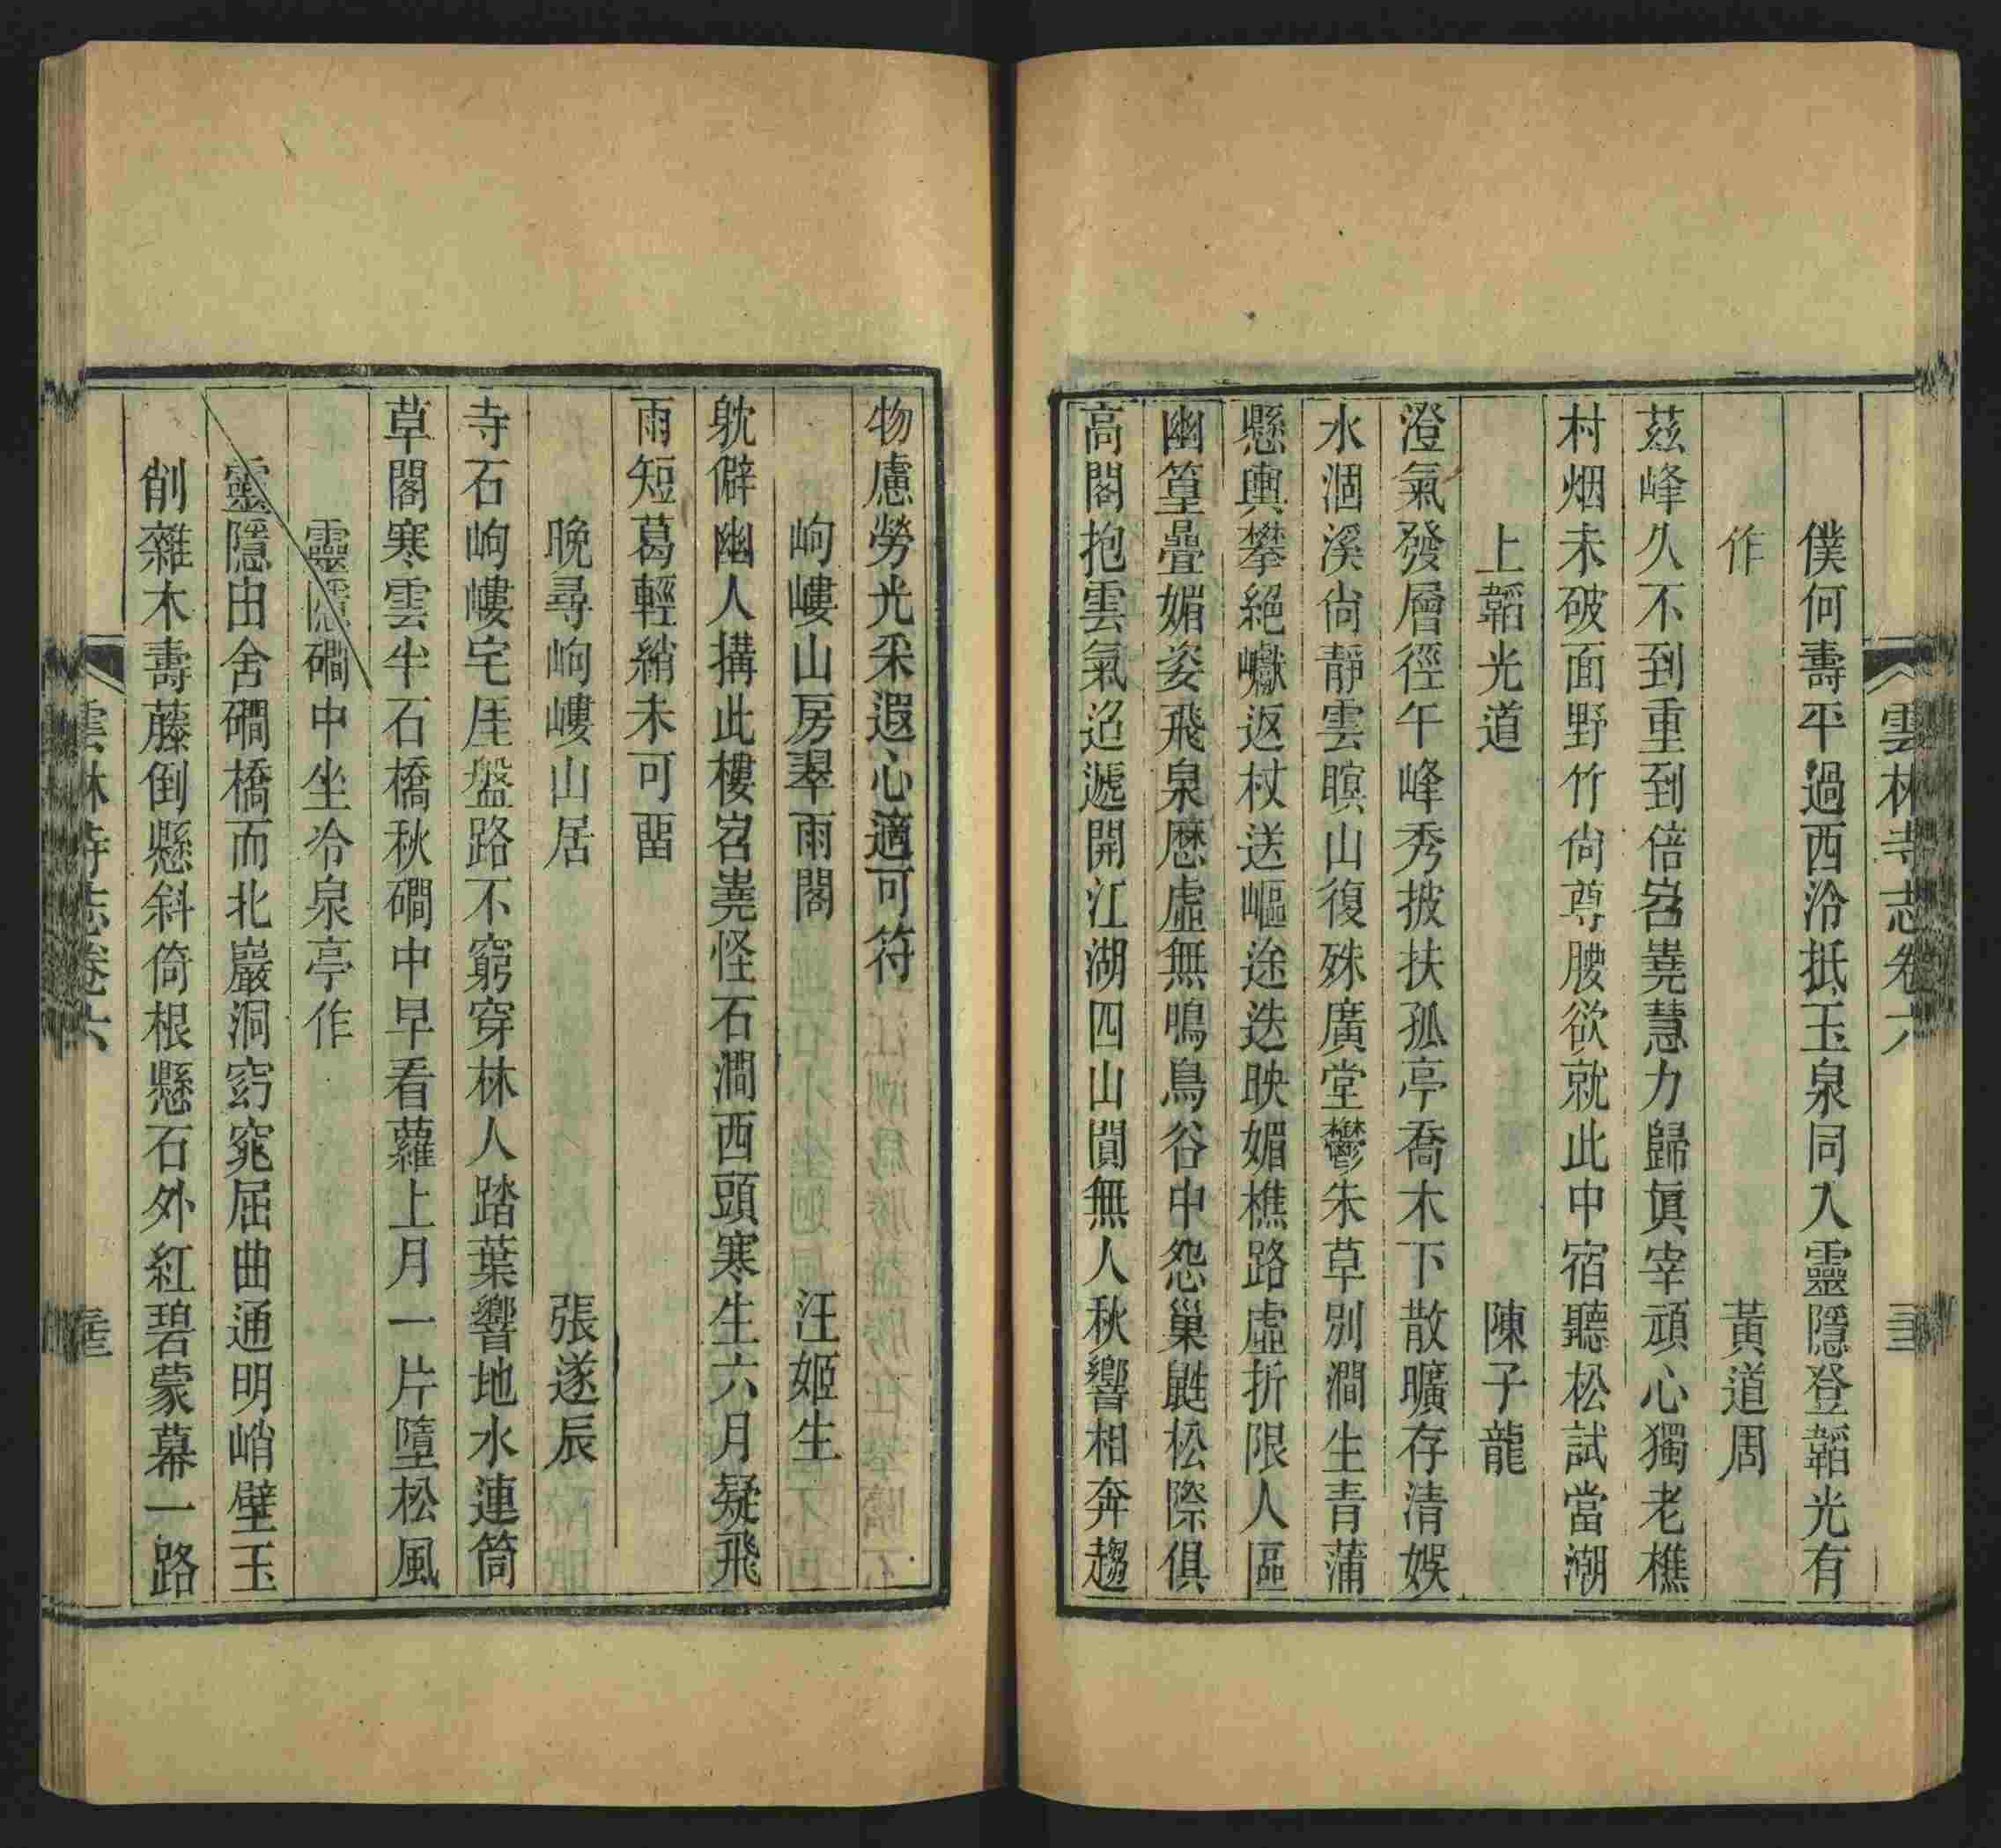 雲林寺志卷六
僕何壽平過西泠抵玉泉同入靈隱登韜光有
作　黃道周
茲峰久不到重到倍岧嶤慧力歸眞宰頑心獨老樵
村烟未破面野竹尙尊腰欲就此中宿聽松試當潮
上韜光道　陳子龍
澄氣發層徑午峰秀披扶孤亭喬木下散曠存清娛
水涸溪尙靜雲瞑山復殊廣堂鬱朱草別澗生青蒲
懸輿攀絕巘返杖送嶇途迭映媚樵路虛折限人區
幽篁疊媚姿飛泉歷虛無鳴鳥谷中怨巢鼪松際俱
高閣抱雲氣迢遞開江湖四山閴無人秋響相奔趨
物慮勞光采遐心適可符
岣嶁山房翠雨閣　汪姬生
躭僻幽人搆此樓岧嶤怪石澗西頭寒生六月疑飛
雨短葛輕綃未可畱
晚尋岣嶁山居　張遂辰
寺石岣嶁宅厓盤路不窮穿林人踏葉響地水連筒
草閣寒雲半石橋秋磵中早看蘿上月一片墮松風
靈隱磵中坐冷泉亭作
靈隱由舍磵橋而北巖洞窈窕屈曲通明峭壁玉
削雜木壽藤倒懸斜倚根懸石外紅碧蒙幕一路
雲林寺志卷六